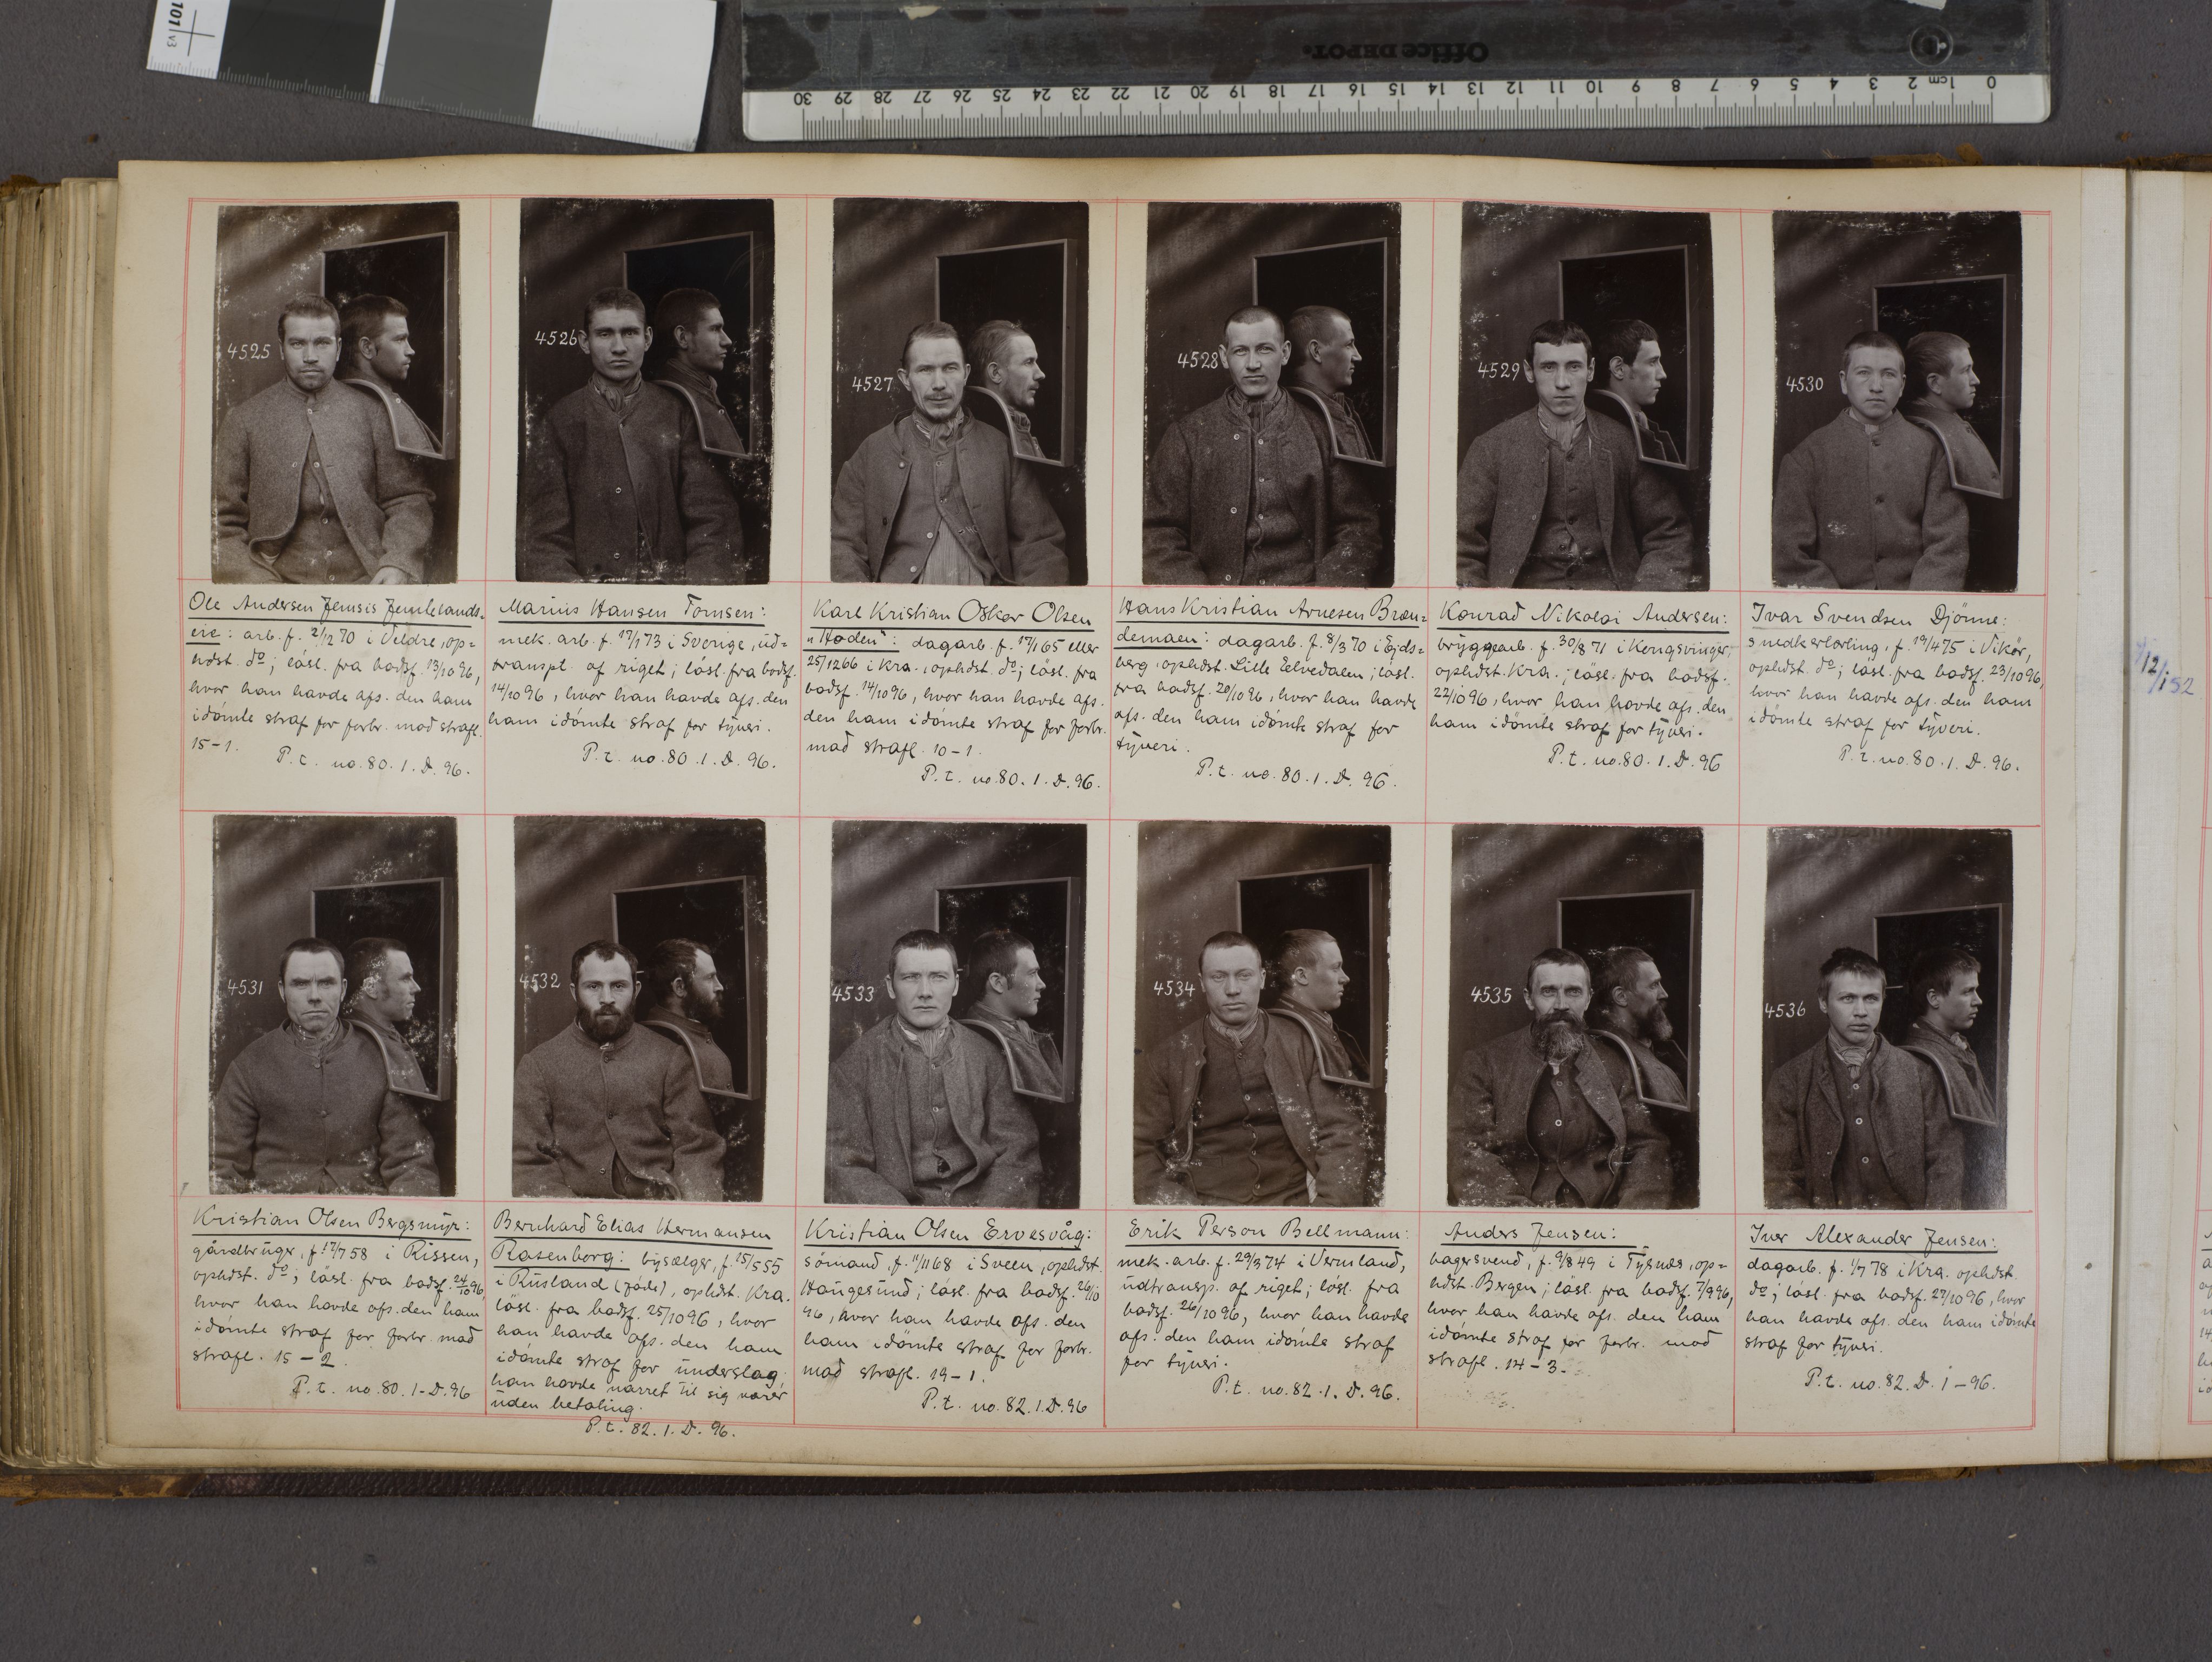 101 v3
Office DEPOT.
0 1cm 2 3 4 5 6 7 8 9 10 11 12 13 14 15 16 17 18 19 20 21 22 23 24 25 26 27 28 29 30
4525
4526
4527
4528
4529
4530
Ole Andersen Jemsis Jemtelands-
eie: arb. f. 2/12 70 i Veldre, op-
hdst. do; løsl. fra bodsf. 13/10 96,
hvor han havde afs. den ham
idömte straf for forbr. mod strafl.
15-1.
P.t. no. 80. 1. D. 96.
Marius Hansen Tomsen:
mek. arb. f. 17/1 73 i Sverige, ud-
transpt. af riget; løsl. fra bodsf.
14/10 96, hvor han havde afs. den
ham idömte straf for tyveri.
P.t. no. 80. 1. D. 96.
Karl Kristian Oskar Olsen
"Hoden": dagarb. f. 17/1 65 eller
25/12 66 i Kra., ophdst. do; løsl. fra
bodsf. 14/10 96, hvor han havde afs.
den ham idömte straf for forbr.
mod strafl. 10-1.
P.t. no. 80. 1. D. 96.
Hans Kristian Arnesen Bræn-
demaen: dagarb. f. 8/3 70 i Ejds-
berg, ophdst. Lille Elvedalen; løsl.
fra bodsf. 20/10 96, hvor han havde
afs. den ham idömte straf for
tyveri.
P.t. no. 80. 1. D. 96.
Konrad Nikolai Andersen:
bryggearb. f. 30/8 71 i Kongsvinger,
ophdst. Kra.; løsl. fra bodsf.
22/10 96, hvor han havde afs. den
ham idömte straf for tyveri.
P.t. no. 80. 1. D. 96
Ivar Svendsen Djönne:
smedkerlærling, f. 19/4 75 i Vikör,
ophdst. do; løsl. fra bodsf. 23/10 96,
hvor han havde afs. den ham
idömte straf for tyveri.
P.t. no. 80. 1. D. 96.
12/152
4531
4532
4533
4534
4535
4536
Kristian Olsen Bergsmyr:
gårdbruger, f. 17/7 58 i Rissen,
ophdst. do; løsl. fra bodsf. 24/10 96,
hvor han havde afs. den ham
idömte straf for forbr. mod
strafl. 15-2.
P.t. no. 80. 1-D. 96
Bernhard Elias Hermansen
Rosenborg: bysælger, f. 15/5 55
i Rusland (jøde), ophdst. Kra.
løsl. fra bodsf. 25/10 96, hvor
han havde afs. den ham
idömte straf for underslag;
han havde narret til sig varer
uden betaling.
P.t. 82. 1. D. 96.
Kristian Olsen Ervesvåg:
sömand, f. 11/11 68 i Sveen, ophdst.
Haugesund; løsl. fra bodsf. 26/10
96, hvor han havde afs. den
ham idömte straf for forbr.
mod strafl. 19-1.
P.t. no. 82. 1. D. 96
Erik Person Bellmann:
mek. arb. f. 29/3 74 i Vermland,
udtransp. af riget; løsl. fra
bodsf. 26/10 96, hvor han havde
afs. den ham idömte straf
for tyveri.
P.t. no. 82. 1. D. 96.
Anders Jensen:
bagersvend, f. 9/8 49 i Tysnes, op-
hdst. Bergen; løsl. fra bodsf. 7/9 96,
hvor han havde afs. den ham
idömte straf for forbr. mod
strafl. 14-3.
Iver Alexander Jensen:
dagarb. f. 1/7 78 i Kra. ophdst.
do; løsl. fra bodsf. 27/10 96, hvor
han havde afs. den ham idömte
straf for tyveri.
P.t. no. 82. D. 1-96.